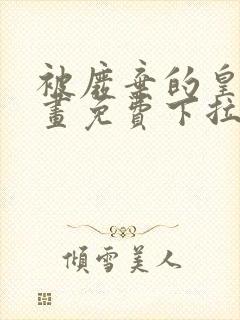 被廢棄的皇
畫免費下拉
傾雪美人